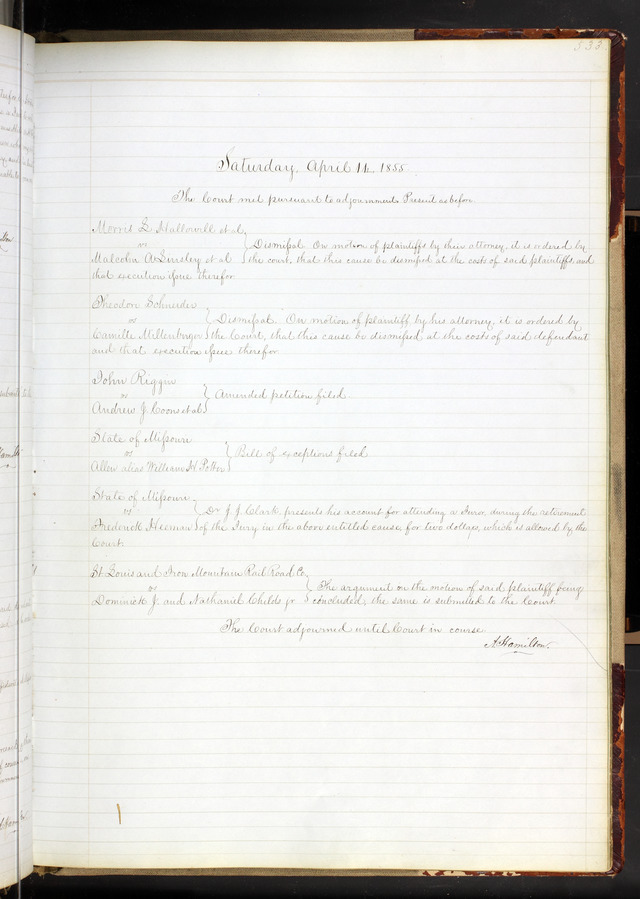 533
Saturday, April 14, 1855.
The Court met pursuant to adjournment. Present as before
Morris L Hallowell et al,
vs
Malcolm A. Linsley et al
Dismissal. On motion of plaintiffs by their attorney, it is ordered by
the court, that this cause be dismissed at the costs of said plaintiffs, and
that execution issue therefor.
Theodore Schneider
vs
Camille Millenberger
Dismissal. On motion of plaintiff by his attorney, it is ordered by
the Court, that this cause be dismissed, at the costs of said defendant
and that execution issue therefor.
John Riggin
vs
Andrew J. Coons et al
Amended petition filed.
State of Missouri
vs
Allen alias William H. Potter
Bill of exceptions filed
State of Missouri
vs
Frederick Heeman
Dr J. J. Clark, presents his account for attending a Juror, during the retirement
of the Jury in the above entitled cause, for two dollars, which is allowed by the
Court.
St Louis and Iron Mountain Rail Road Co
vs
Dominick J. and Nathaniel Childs jr
The argument on the motion of said plaintiff being
concluded, the same is submitted to the Court.
The Court adjourned until Court in course
A. Hamilton.